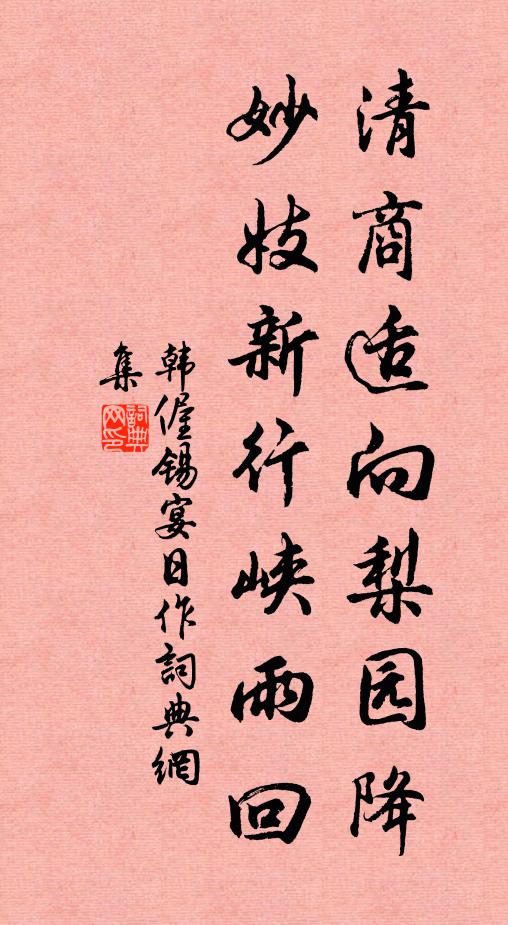 清商适向梨园降
妙妓新行峡雨回
韩偓锡宴日作詞典網
集
詞典网印